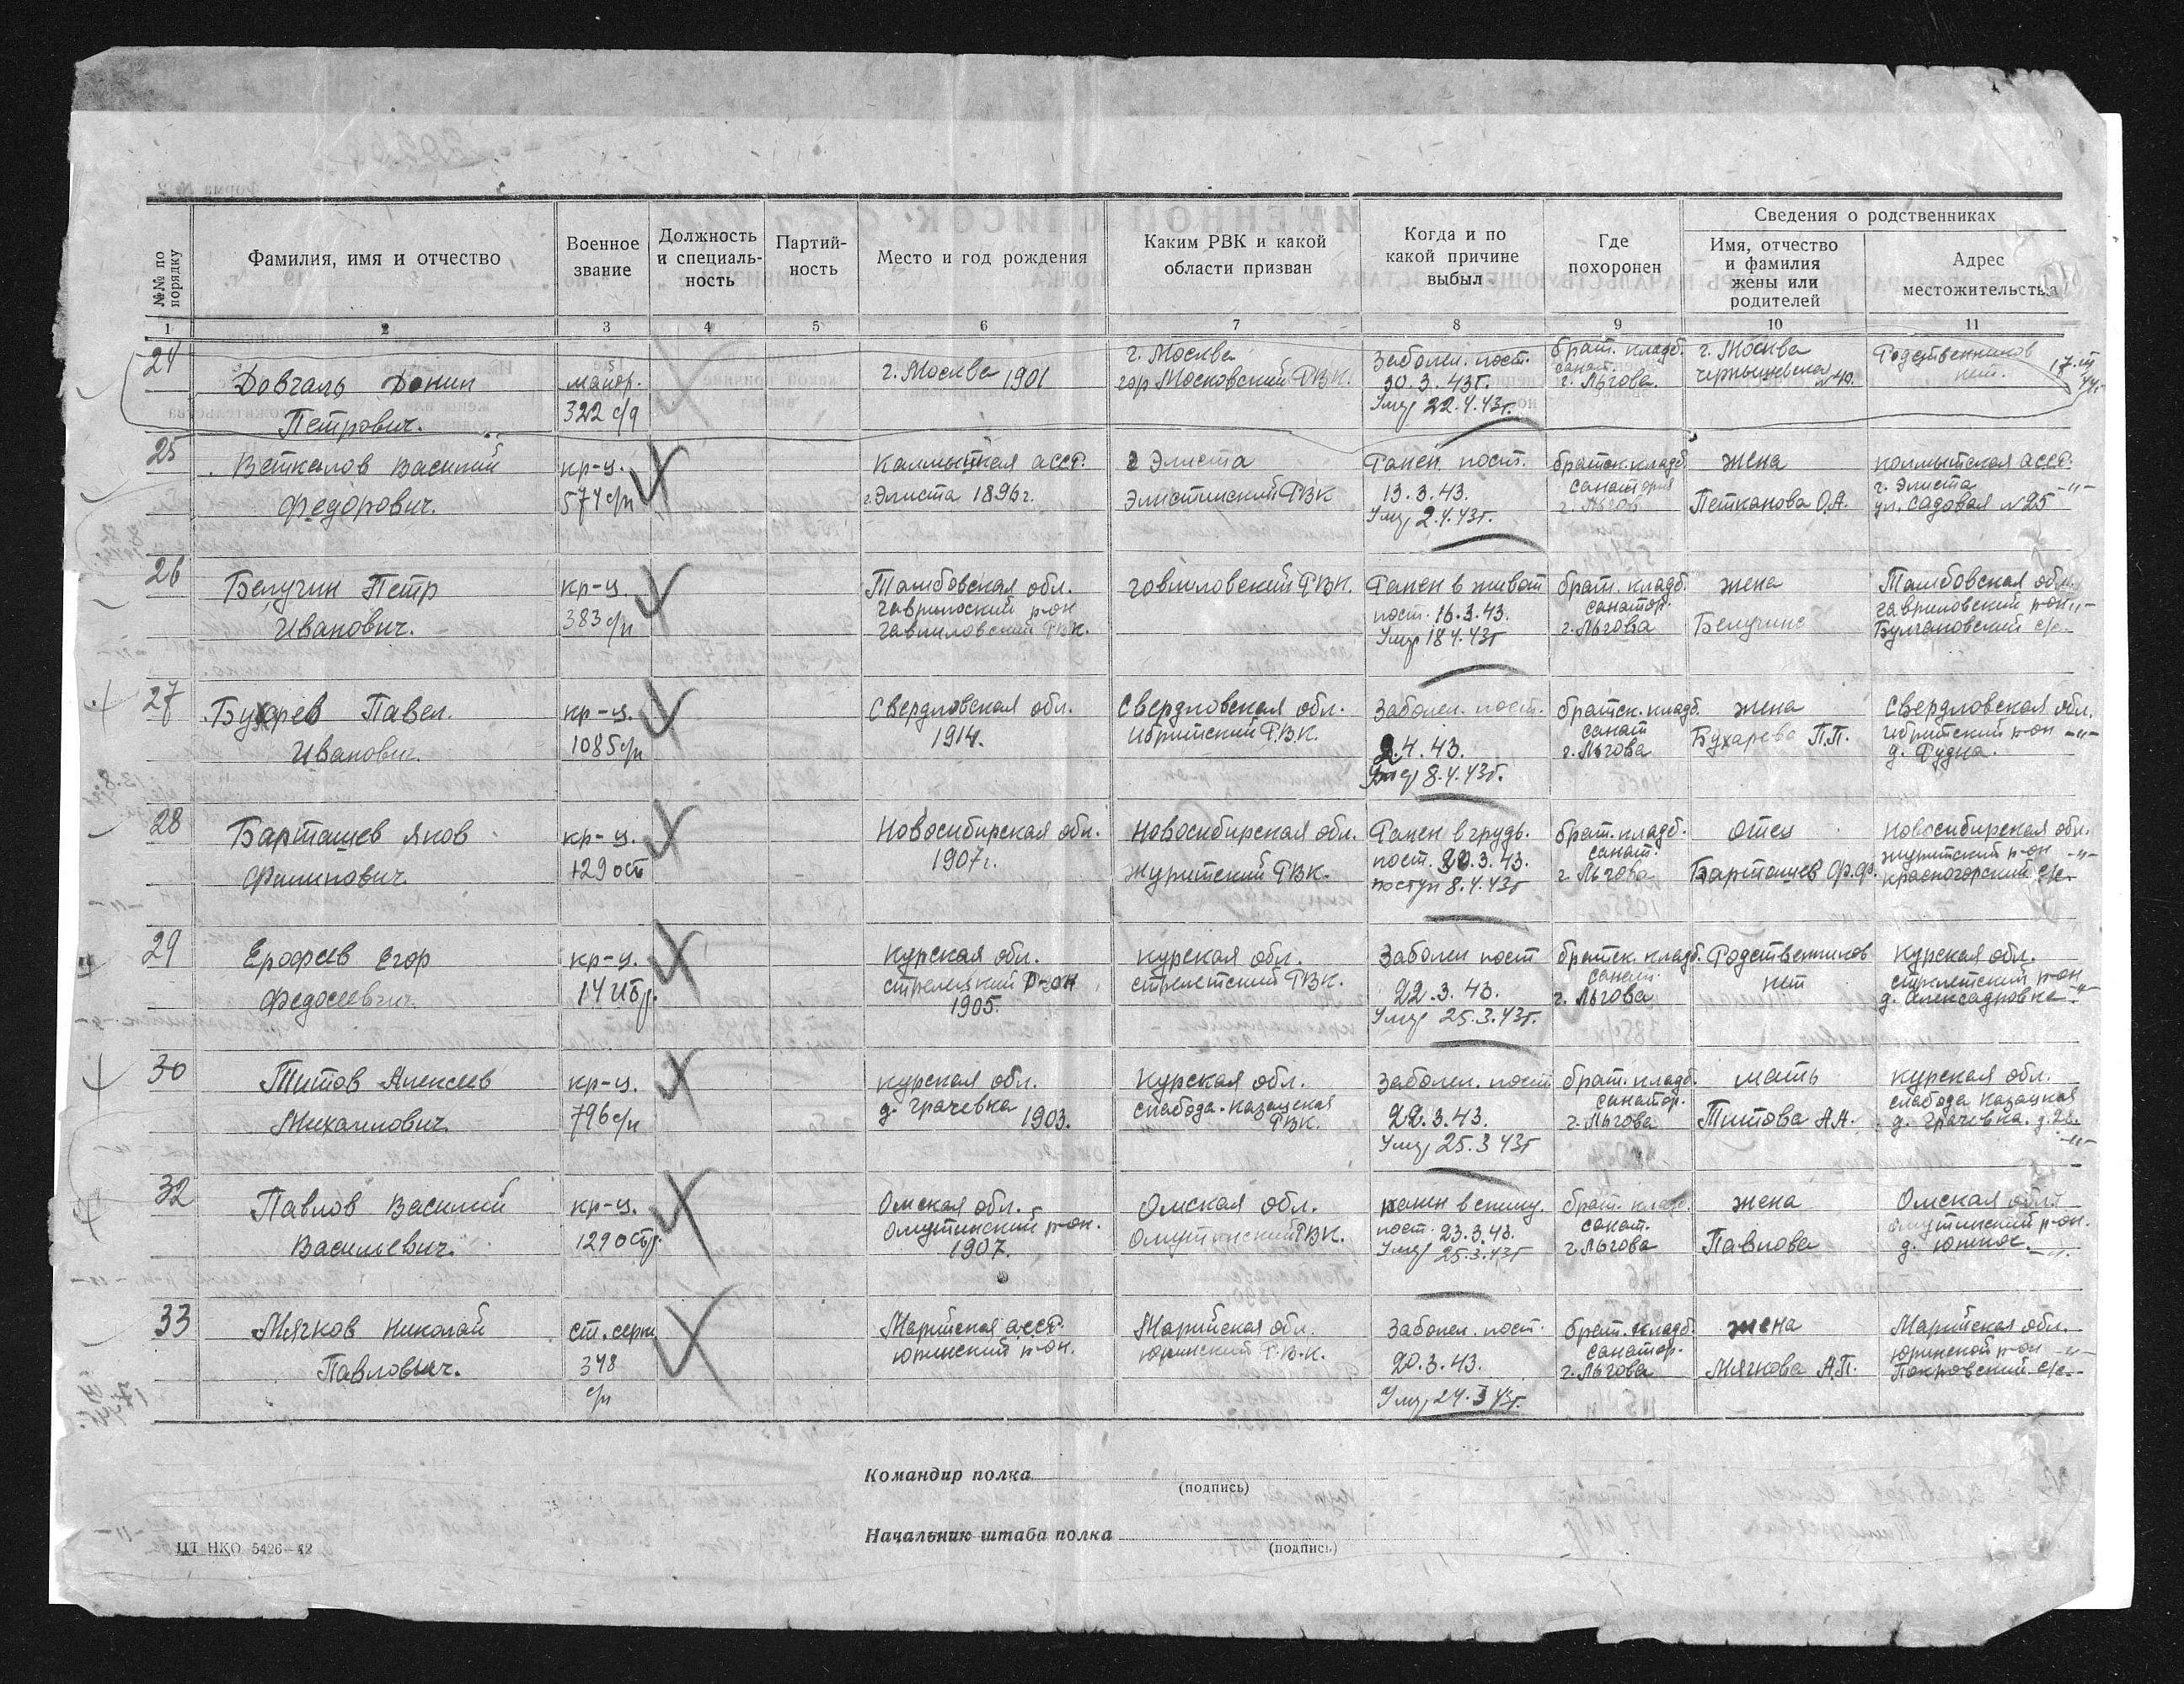 №№ по порядку
Фамилия, имя и отчество
Военное звание
Должность и специаль-ность
Партий-ность
Место и год рождения
Каким РВК и какой области призван
Когда и по какой причине выбыл
Где похоронен
Сведения о родственниках
Имя, отчество и фамилия жены или родителей
Адрес местожительства
1 2 3 4 5 6 7 8 9 10 11
24
Довгаль
Петрович.
майор.
322 с/д
г. Москва 1901
г. Москва
гор Московский РВК.
Заболел. пост.
30.3.43г.
Умер 22.4.43г.
брат. кладб.
санат.
г. Льгова.
г. Москва
Чернышевская №40.
Родственников
нет.
25
Веткалов Василий
Федорович.
кр-ц.
574 с/п
Калмыцкая асср.
г. Элиста 1896г.
г Элиста
Элистинский РВК
Ранен пост.
13.3.43.
Умер 2.4.43г.
братск. кладб.
санатория
г. Льгов
жена
Петканова О.А.
калмытская асср.
г. Элиста -"-
ул. Садовая №25
26
Белугин Петр
Иванович.
кр-ц.
383 с/п
Тамбовская обл.
гавриловский РВК.
Ранен в живот
пост. 16.3.43.
Умер 18.4.43г
брат. кладб.
санатор.
г. Льгова
жена
Тамбовская обл.
гавриловский р-он -"-
Булгаковский с/с.
27
Бухарев Павел.
Иванович.
кр-ц.
1085 с/п
Свердловская обл.
1914.
Свердловская обл.
Ибритский Р.В.К.
Заболел. пост.
2.4.43.
Умер 8.4.43г.
братск. кладб.
санат
г. Льгова
жена
Бухарева П.П.
Свердловская обл.
Ибритский р-он -"-
д. Рудна.
28
Барташев Яков
Филипович.
кр-ц.
129 осб
Новосибирская обл.
1907г.
Новосибирская обл.
Журитский РВК.
Ранен в грудь.
пост. 20.3.43.
поступ 8.4.43г
брат. кладб.
санат.
г. Льгова
отец
Барташев Ф.Ф.
Новосибирская обл.
журитский р-он -"-
красногорский с/с.
29
Ерофеев Егор
Федосеевич.
кр-ц.
14 Ибр.
Курская обл.
стрелецкий р-он
1905.
Курская обл.
стрелетский РВК.
Заболел пост
22.3.43.
Умер 25.3.43г.
братск. кладб.
санат.
г. Льгова
Родственников
нет
Курская обл.
стрелетский р-он
д. Александровка -"-
30
Титов Алексеев
Михаилович.
кр-ц.
796 с/п
курская обл.
д. Грачевка 1903.
Курская обл.
слабода-казацкая
РВК.
Заболел. пост
22.3.43.
Умер 25.3 43г
брат. кладб.
санатор.
г. Льгова
мать
Титова А.А.
курская обл.
слабода казацкая
д. Грачевка. д.28.
-"-
32
Павлов Василий
Васильевич.
кр-ц.
129 осбр.
Омская обл.
Омутинский р-он.
1907.
Омская обл.
Омутинский РВК.
ранен в спину.
пост. 23.3.43.
Умер 25.3.43г
брат. клад.
санат.
г. Льгова
жена
Павлова
Омская обл.
омутинский р-он.
33
Мягков Николай
Павлович.
ст. серж
348
с/п
Марийская асср.
юринский р-он.
Марийская обл.
юринский Р.В.К.
Заболел. пост.
20.3.43.
Умер 24.3 43г.
брат. кладб.
санатор.
г. Льгова
жена
Мягкова А.П.
Марийская обл.
юринской р-он -"-
Покровский с/с.
Командир полка
(подпись)
Начальник штаба полка
(подпись)
ЦТ НКО 5426—42